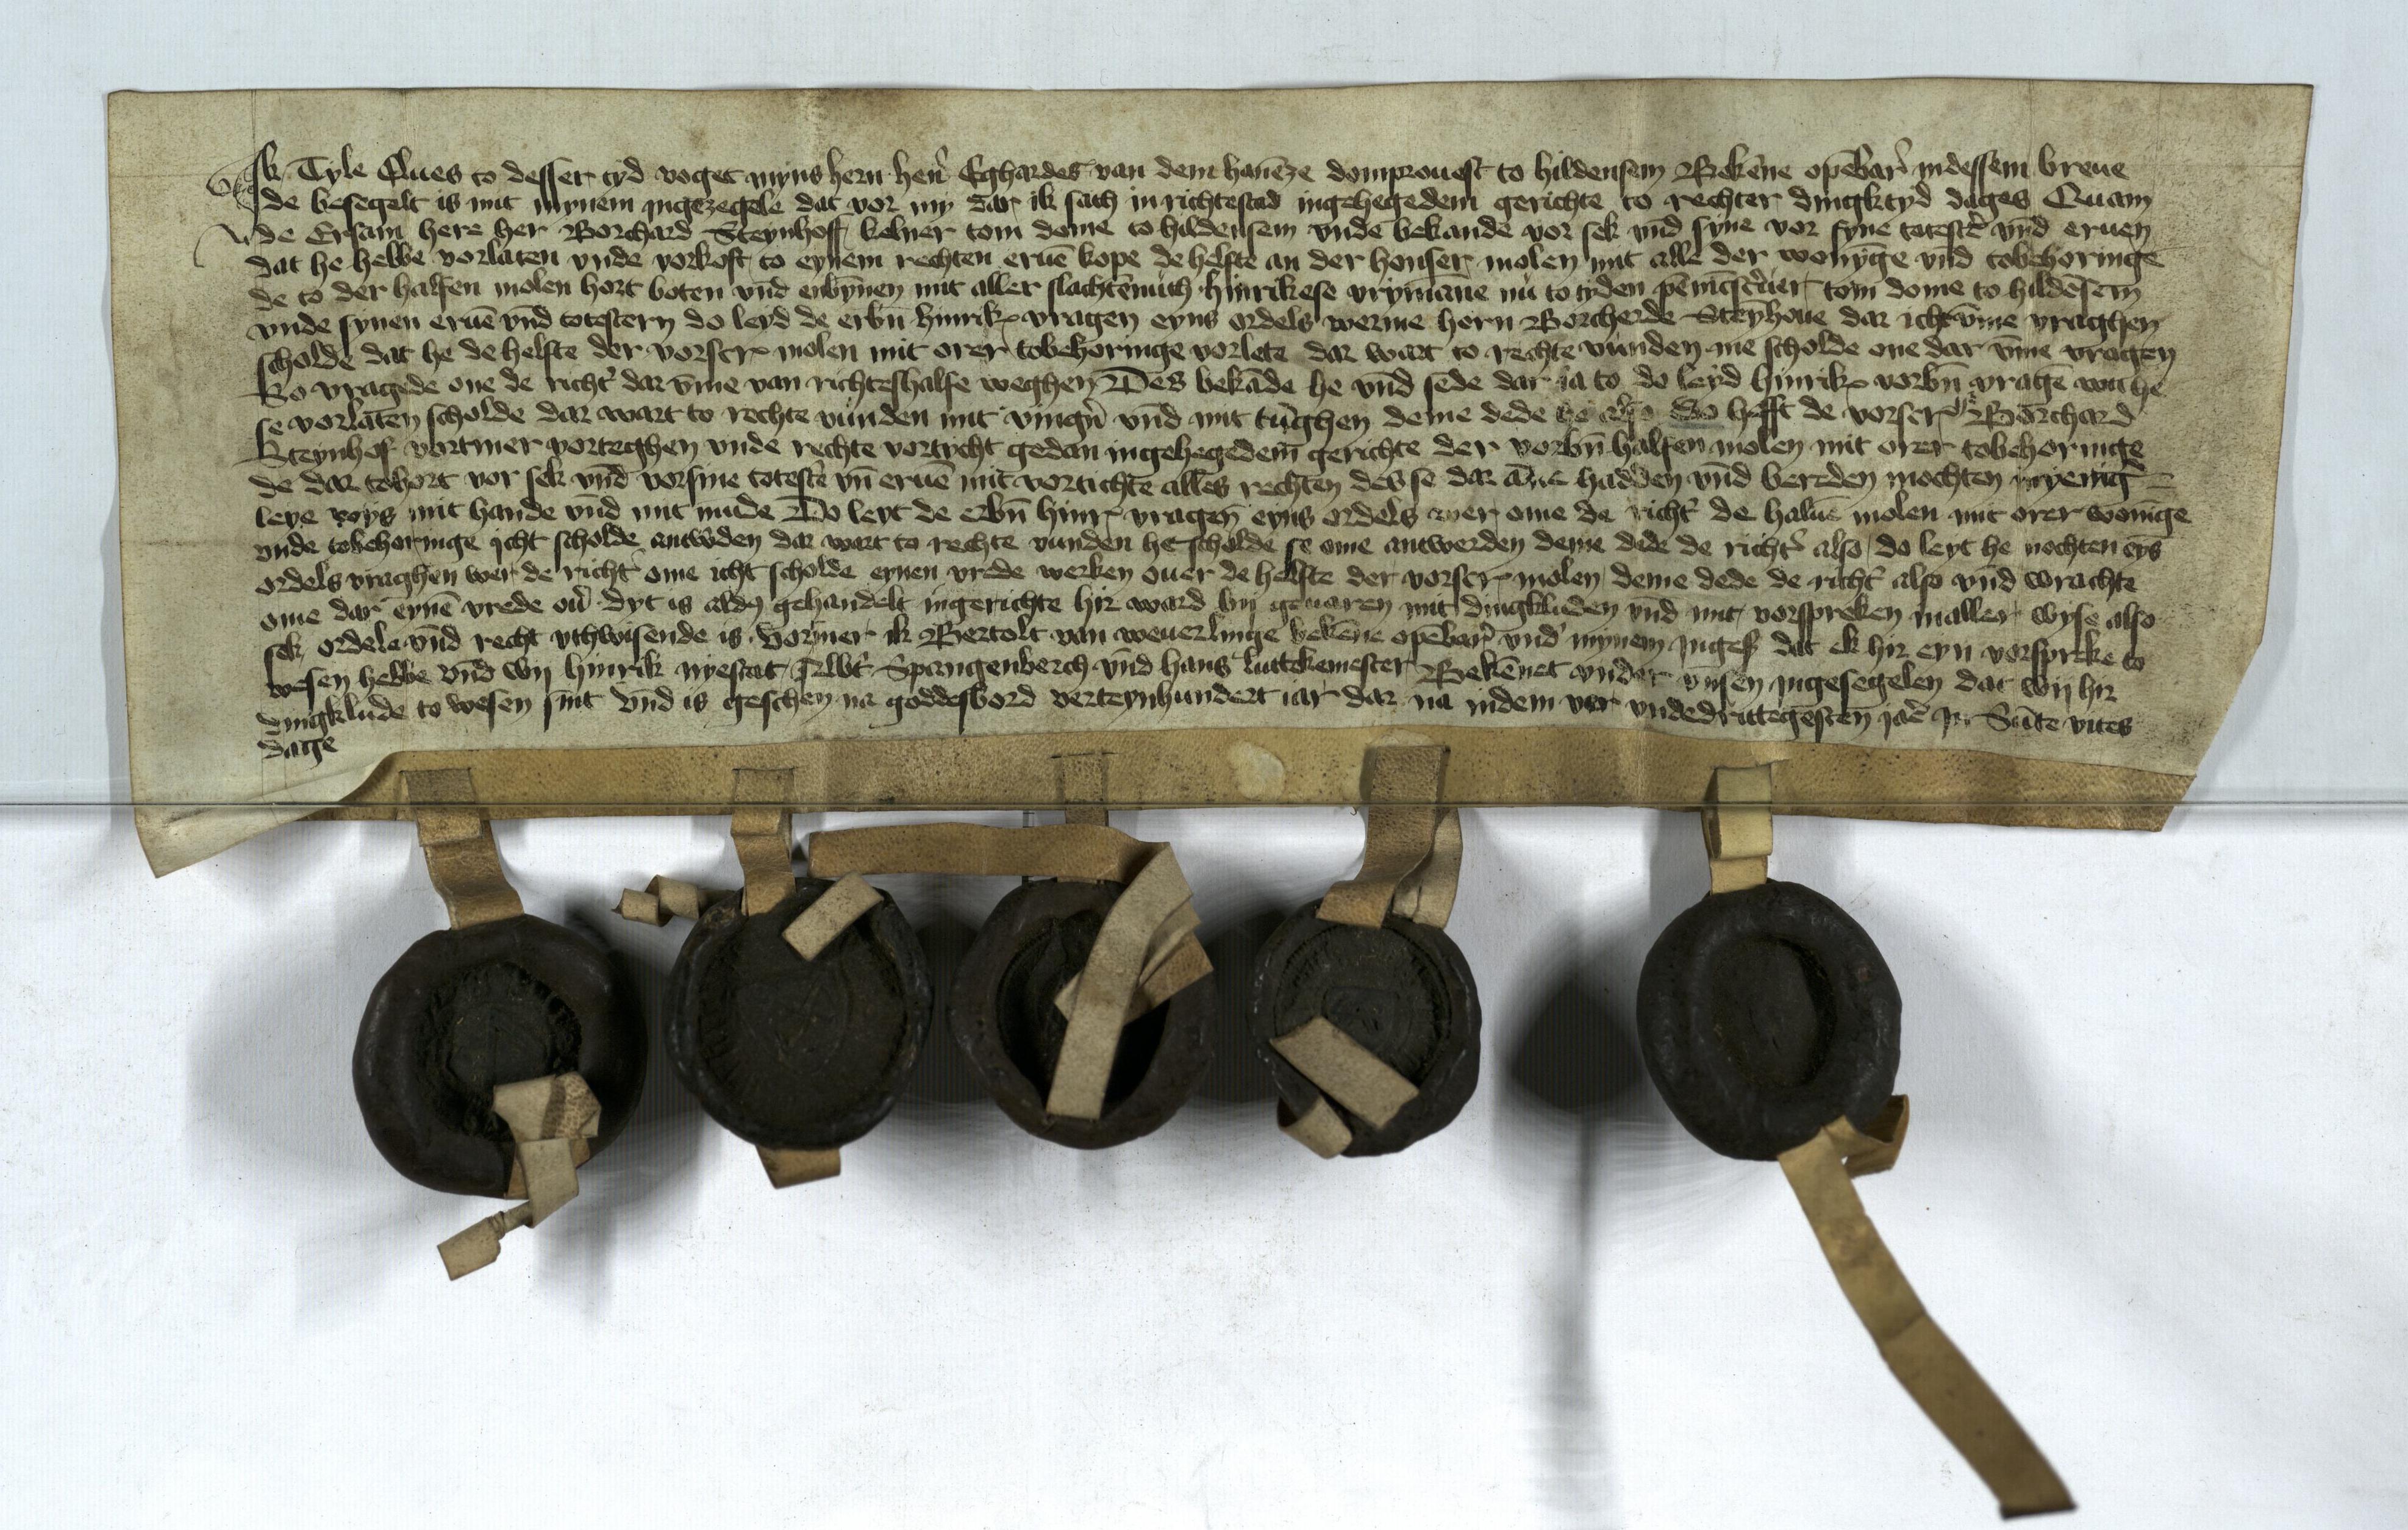 Ik Tyle Clues to desser tyd voget myns hern hern̄ Eghardes van dem hanēze domprouest to hildensem Bekēne opēbar̄ in dessem breue
de besegelt is mit mynem ingezegele dat vor my dar ik sath in richtestad in gehegedem gerichte to rechter dingktyd dages Quam
de Ersam here her Borchard Steynhoff kelner tom dome to hildensem vnde bekande vor sek vn̄d syne vor syne totestēr vn̄d eruen
dat he hebbe vorlaten vnde vorkoft to eynem rechten eruē kope de helfte an der honser molen mit alle der wonȳge vn̄d tobehoringe
de to der halfen molen hort boten vn̄d enbynnen mit aller slachtēnuth hinrikese vrymāne nu to tyden pēnīgscr̄iuer tom dome to hildēsem
vnde synen eruē vn̄d totestern do leyd de erbn̄ hinrik vragen eyns ordels werme hern Borcherde Steȳhoue dar icht vm̄e vraghen
scholde dat he de helfte der vorscr molen mit orer tobehoringe vorlete dar wart to rechte vunden me scholde one dar vm̄e vragen
So vragede one de richt̄ dar vm̄e van richteshalfe weghen Des bekāde he vn̄d sede dar ia to do leyd hinrik vorbn̄ vragē wu he
se vorlaten scholde dar wart to rechte vunden mit vingn̄ vn̄d mit tunghen deme dede he also Do hefft de vorscr Borchard
Steynhof vortmer vorteghen vnde rechte vorticht gedan in gehegedem̄ gerichte der vorbn̄ halfen molen mit orer tobehoringe
de dar tohort vor sek vn̄d vor sine totestēr vn̄ eruē mit vortichte alles rechten des se dar āne hadden vn̄d hebben mochten in yenig
leye wys mit hande vn̄d mit mūde Do leyt de erbn̄ hinr vragen eyns ordels wer ome de richt̄ de haluē molen mit orer wonīge
vnde tobehoringe icht scholde antw̄den dar wart to rechte vunden he scholde se ome antwerden deme dede de richt̄ also do leyt he nochten eȳs
ordels vraghen wer de richt̄ ome icht scholde eynen vrede werken ouer de helfte der vorscr molen deme dede de richt̄ also vn̄d wrachte
ome dar eynē vrede ou̅ Dyt is aldus gehandelt in gerichte hir ward bii geuaren mit dingkluden vn̄d mit vorspreken in aller wyse also
sek ordele vn̄d recht vthwisende is Vortmer ik Bertolt van weuerlinge bekēne opēbar̄ vnd̄ mynem ingeß dat ek hir eyn vorspreke to
wesen hebbe vn̄d wij hinrik nyestat Albt̄ Spangenberch vn̄d hans luttekemester Bekēnet vnder vnsen ingesegelen dat wij hir
dingklude to wesen sint vn̄d is geschen na goddesbord verteynhundert iar dar na in dem ver vndedrittegesten iar̄ In Sūte vites
dage